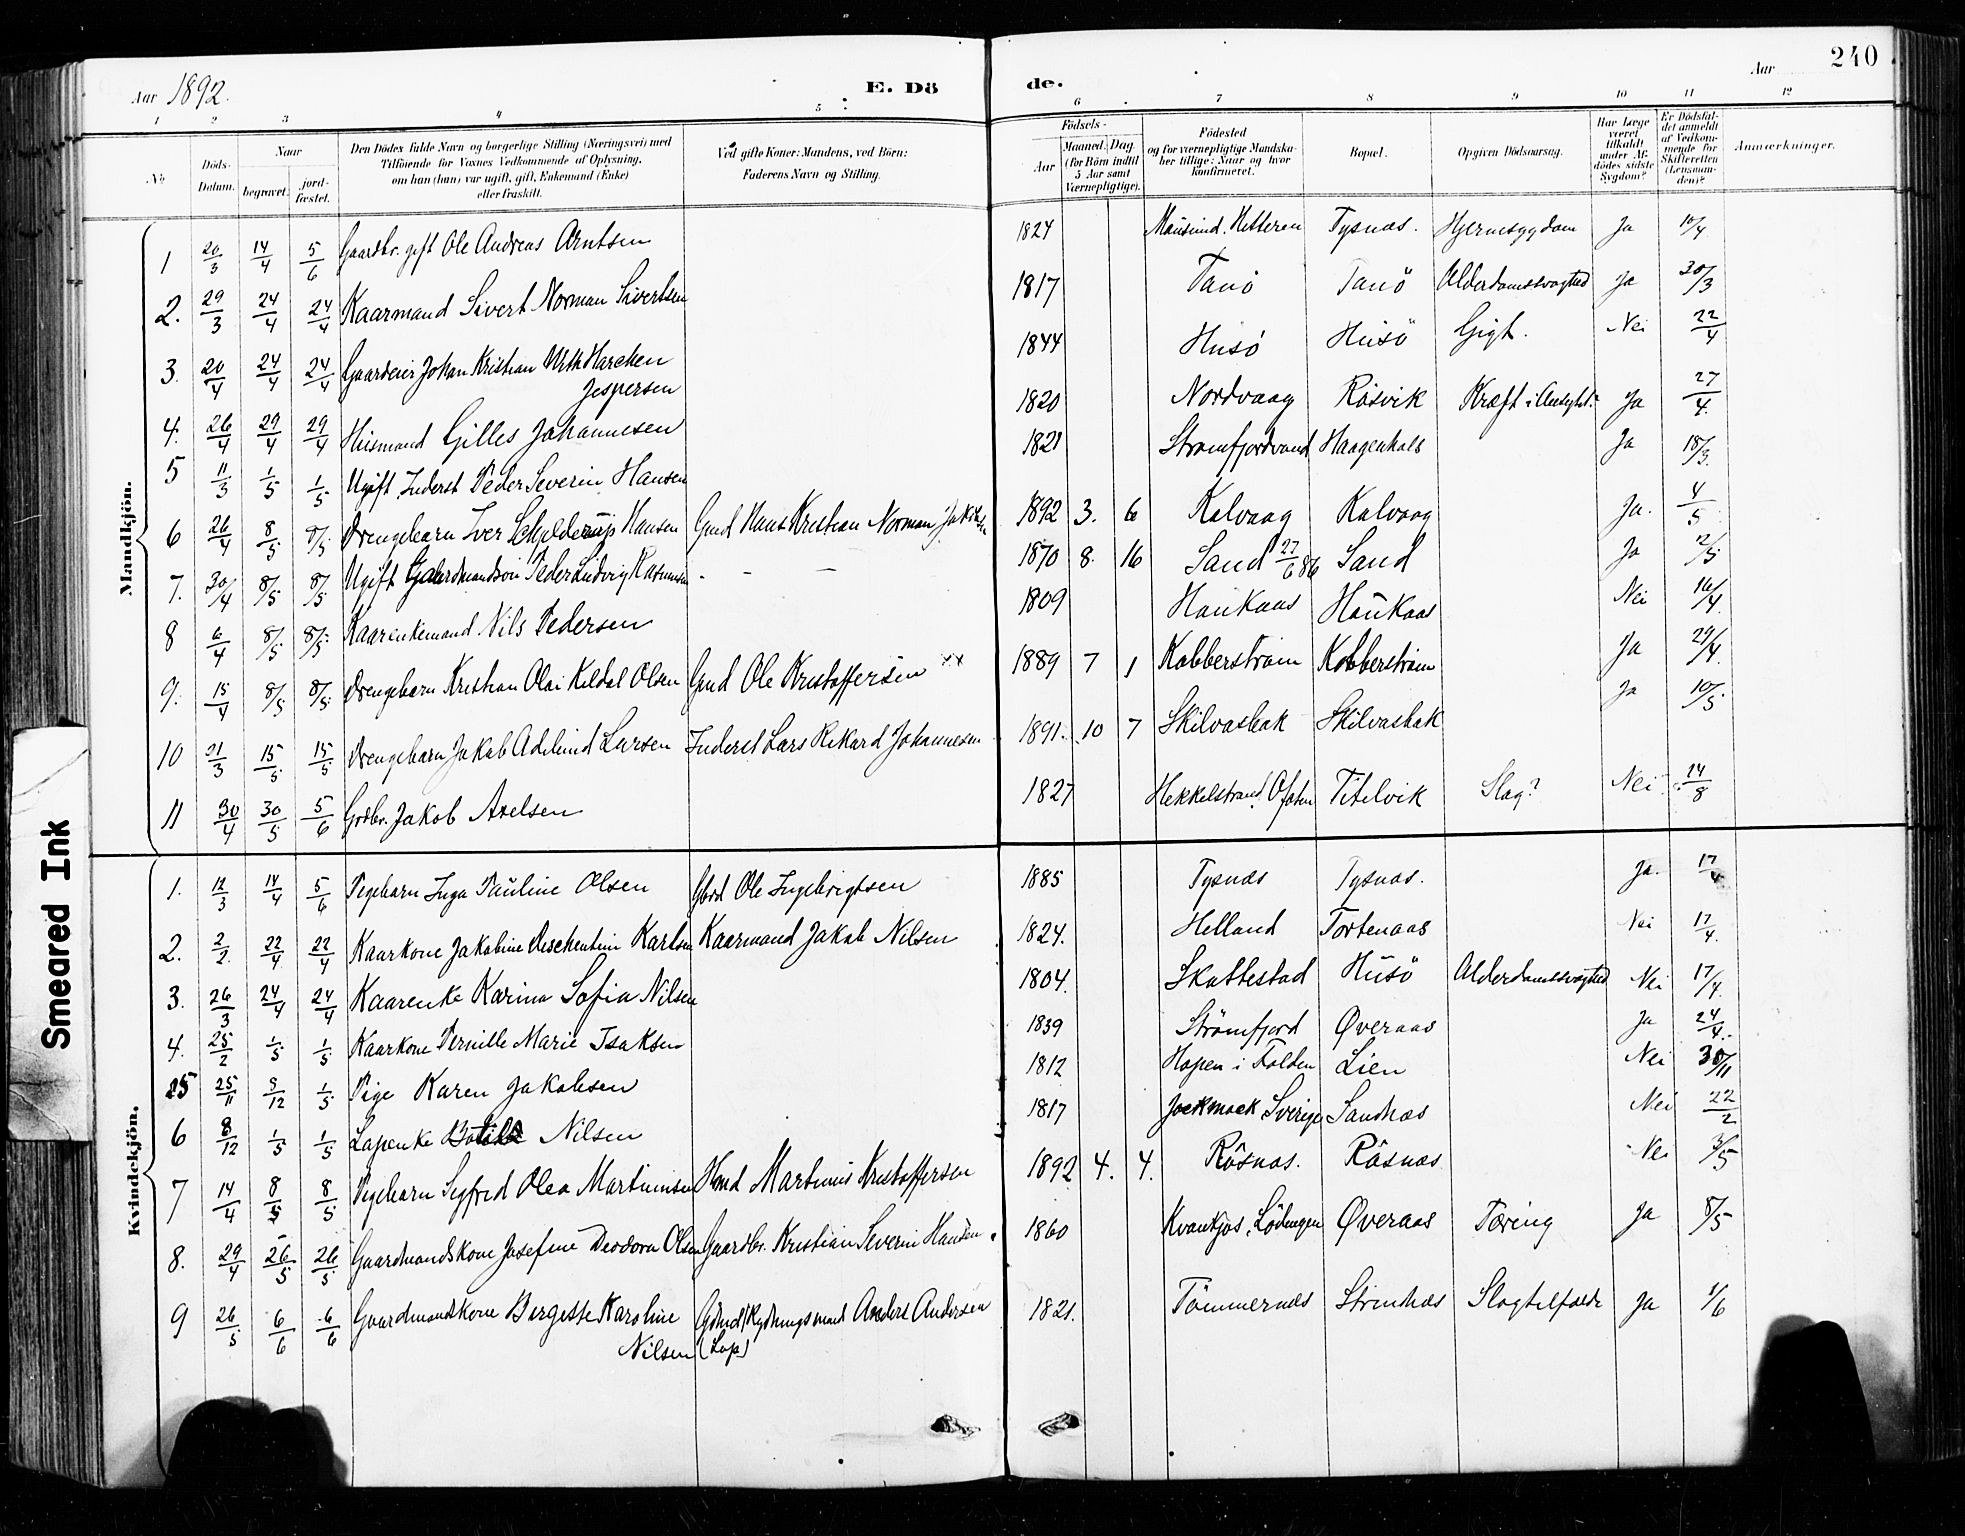 240
Aar 1892. E. Dö de. Aar
1 2 3 4 5 6 7 8 9 10 11 12
No Döds-Datum. Naar begravet. jord-fæstet. Den Dödes fulde Navn og borgerlige Stilling (Næringsvei) med Tilföiende for Voxnes Vedkommende af Oplysning, om han (hun) var ugift, gift, Enkemand (Enke) eller fraskilt. Ved gifte Koner: Mandens, ved Börn: Faderens Navn og Stilling. Födsels- Aar Maaned. Dag. (for Börn indtil 5 Aar samt Værnepligtige). Födested og for værnepligtige Mandskaber tillige: Naar og hvor konfirmeret. Bopæl. Opgiven Dödsaarsag. Har Læge været tilkaldt under Afdödes sidste Sygdom? Er Dödsfaldet anmeldt af Vedkommende for Skifteretten (Lensmanden)? Anmærkninger.
Mandkjön.
1 20/3 14/4 5/6 Gaardbr. gift Ole Andreas Arntsen 1824 Mausund. Hitteren Tysnæs. Hjernesygdom Ja 10/4
2. 29/3 24/4 24/4 Kaarmand Sivert Norman Sivertsen 1817 Tanö Tanö Alderdomssvaghed Ja 30/3
3. 20/4 24/4 24/4 Gaardeier Johan Kristian Jespersen 1844 Husö Husö Gigt. Nei 22/4
4. 26/4 29/4 29/4 Husmand Gilles Johannesen 1820 Nordvaag Rösvik Kræft i Ansigt. Ja 27/4.
5 11/3 1/5 1/5 Ugift Inderst Peder Severin Hansen 1821 Haagenhals Ja 18/3.
6 26/4 8/5 8/5 Drengebarn Iver Schjelderup Hansen Gmd Hans Kristian Norman 1892 3. 6 Kalvaag Kalvaag Ja. 4/5
7. 30/4 8/5 8/5 Ugift Gaardmandssön Peder Ludvig Rasmussen - - - 1870 8. 16 Sand 27/6 86 Sand Ja 2/5
8 6/4 8/5 8/5 Kaarenkemand Nils Pedersen 1809 Haukaas Haukaas Nei 16/4
9. 15/4 8/5 8/5 Drengebarn Kristian Olai Kildal Olsen Gmd Ole Kristoffersen 1889 7 1 Kobberström Kobberström Ja 29/4.
10 21/3 15/5 15/5 Drengebarn Jakob Adelund Larsen Inderst Lars Rikard Johannesen 1891. 10 7 Skilvasbak Skilvasbak Ja 10/5
11 30/4 30/5 5/6 Grdbr. Jakob Axelsen 1827 Hekkelstrand Ofoten Titelvik Slag? Nei 24/8
Kvindekjön.
1. 12/3 14/4 5/6 Pigebarn Inga Pauline Olsen Ole Ingebrigtsen 1885 Tysnæs Tysnæs. Ja. 17/4
2. 2/2 22/4 22/4 Kaarkone Jakobine Karlsen Kaarmand Jakob Nilsen 1824. Helland Tortenaas Nei 17/4.
3. 26/3 24/4 24/4 Kaarenke Karina Sofia Nilsen 1804. Skattestad Husö Alderdomssvaghed Nei 17/4.
4. 25/2 1/5 1/5 Kaarkone Pernille Marie Isaksen 1839 Strömfjord Øveraas Ja 24/4.
5 25/11 9/12 1/5 Pige Karen Jakobsen 1812 Hopen i Folden Lien Nei 30/11
6 8/12 1/5 1/5 Lapenke Nilsen 1817 Jockmock Sverige Sandnæs Nei 22/2
7 14/4 8/5 8/5 Pigebarn Sigfred Olea Martinusen Hmd Martinus Kristoffersen 1892 4. 4. Rösnæs. Rösnæs Nei 3/5
8. 29/4 26/5 26/5 Gaardmandskone Josefine Deodora Olsen Gaardbr. Kristian Severin Hansen. 1860 Lödingen Øveraas Tæring Ja 8/5
9 26/5 6/6 6/6 Gaardmandskone Bergette Karoline Nilsen Rydningsmand Anders Andersen (Lap) 1821. Tömmernæs Strindnæs Slagtilfælde Ja 1/6
Smeared Ink